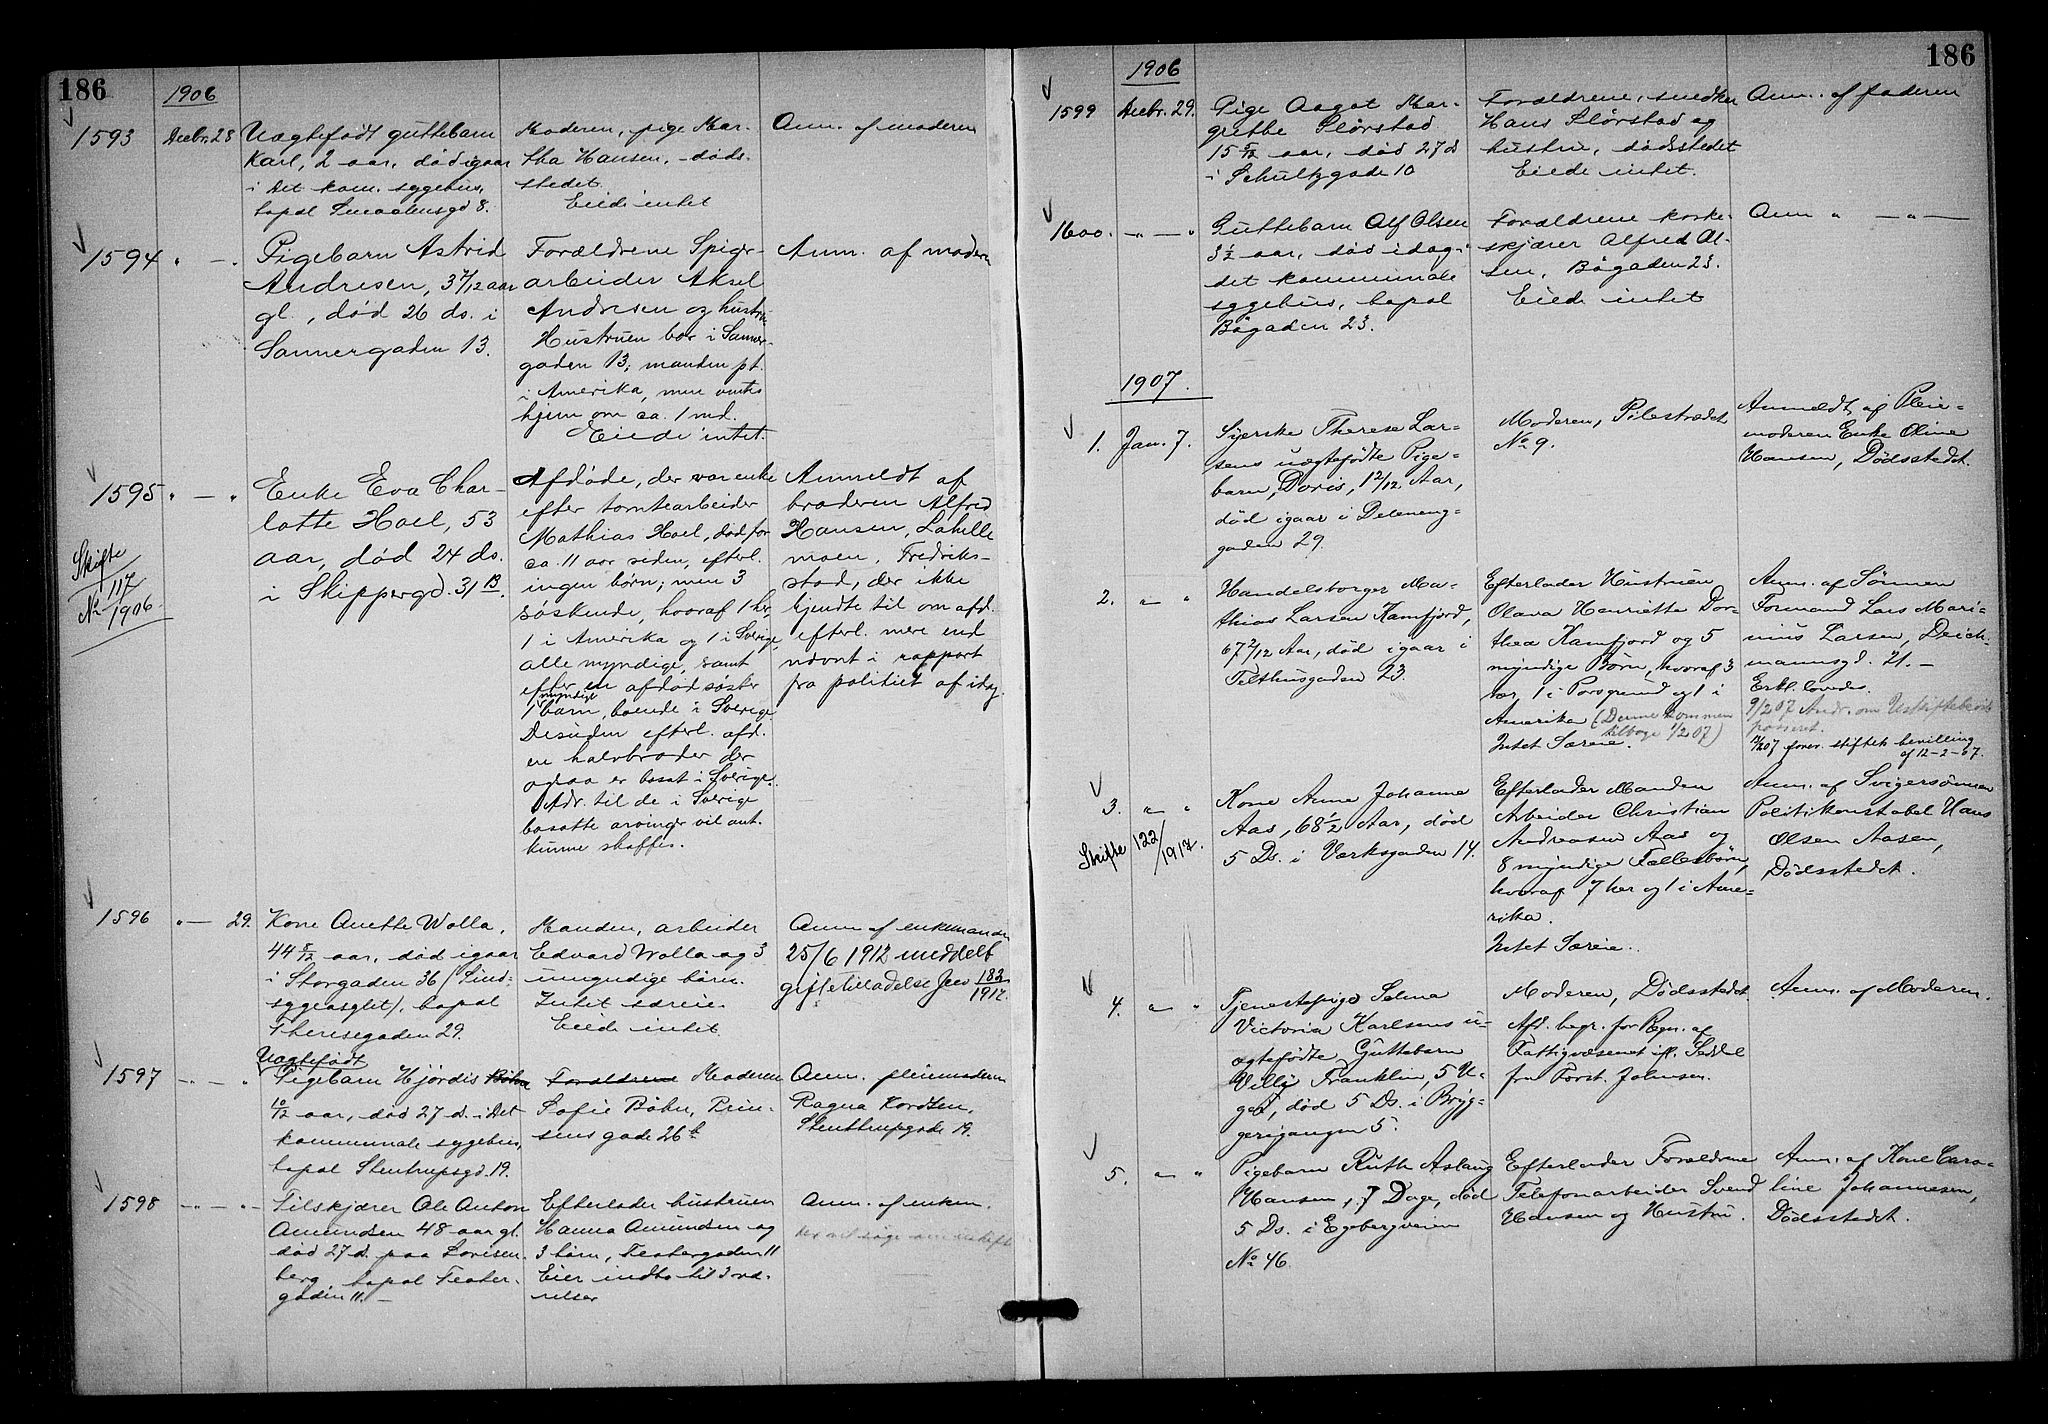 186
1906
1593
Decbr. 28
Uægtefødt guttebarn
Karl, 2 aar, død igaar
i Det kom. sygehus,
bopæl Smaalensgd 8.
Moderen, pige Mar-
tha Hansen, - døds-
stedet.
Eiede intet
Anm. af moderen
1594 " — "
Pigebarn Astrid
Andresen, 3 7/12 aar
gl., død 26 ds. i
Sannergaden 13.
Forældrene Spigr-
arbeider Aksel
Andresen og hustru
Hustruen bor i Sanner-
gaden 13; manden pt.
i Amerika, men ventes
hjem om ca. 1 md.
Eiede intet.
Anm. af moderen
1595 " — "
Skifte
117
No 1906.
Enke Eva Char-
lotte Hoel, 53
aar, død 24 ds.
i Skippergd. 31 B.
Afdøde, der var enke
efter tomtearbeider
Mathias Hoel, død for
ca. 11 aar siden, efterl.
ingen børn; men 3
søskende, hvoraf 1 her,
1 i Amerika og 1 i Sverige,
alle myndige, samt
efter en afdød søster
1 myndigt barn, boende i Sverige
Desuden efterl. afd.
en halvbroder der
ogsaa er bosat i Sverige.
Adr. til de i Sverige
bosatte arvinger vil ant.
kunne skaffes.
Anmeldt af
broderen Alfred
Hansen, Lahelle
moen, Fredrik-
stad, der ikke
kjendte til om afd.
efterl. mere end
nævnt i rapport
fra politiet af idag.
1596 " — 29.
Kone Anette Wolla,
44 5/12 aar, død igaar
i Storgaden 36 (Sind-
sygeasylet), bopæl
Theresegaden 29.
Manden, arbeider
Edvard Wolla og 3
umyndige børn.
Intet særeie.
Eiede intet
Anm. af enkemanden
25/6 1912 meddelt
giftetilladelse Jno 183/1912.
1597 " — "
Uægtefødt
Pigebarn Hjørdis Bøhn
10/12 aar, død 27 d. i Det
kommunale sygehus,
bopæl Stentrupsgd. 19.
Forældrene Moderen
Sofie Bøhn, Prin-
sens gade 26 b
Anm. pleiemoderen
Ragna Kordsen,
Stenstrupgade 19.
1598 " — "
Filskjærer Ole Anton
Amundsen 48 aar gl.
død 27 d. paa Lovisen-
berg, bopæl Teater-
gaden 11. —
Efterlader hustruen
Hanna Amundsen og
3 børn, Teatergaden 11
Eier indbo til 3 væ-
relser
Anm. af enken.
der vil søge om uskifte
186
1906
1599 Decbr. 29.
Pige Aagot Mar-
grethe Slørstad
15 5/12 aar, død 27 d
i Schultzgade 10
Forældrene, snedker
Hans Slørstad og
hustru, dødsstedet
Eiede intet.
Anm. af faderen
1600. " — "
Guttebarn Alf Olsen
3 1/2 aar, død idag i
det kommunale
sygehus, bopæl
Bøgaden 23.
Forældrene korke-
skjærer Alfred Ol-
sen, Bøgaden 23.
Eiede intet
Anm " — " —
1907.
1. Jan. 7.
Syerske Therese Lar-
sens uægtefødte Pige-
barn, Doris, 1 2/12 Aar,
død igaar i Deleneng-
gaden 29.
Moderen, Pilestrædet
No 9.
Anmeldt af Pleie-
moderen Enke Oline
Hansen, Dødsstedet.
2. " — "
Handelsborger Ma-
thias Larsen Kamfjord,
67 2/12 Aar, død igaar i
Telthusgaden 23.
Efterlader Hustruen
Olava Henriette Dor-
thea Kamfjord og 5
myndige Børn, hvoraf 3
her, 1 i Porsgrund og 1 i
Amerika (Denne kommen
tilbage 1/2 07)
Intet Særeie.
Anm. af Sønnen
Formand Lars Mari-
nius Larsen, Deich-
mannsgd. 21. —
Erkl. lovedes.
9/2 07 Andr. om Uskiftebevil.
passeret.
14/2 07 forev. stiftets bevilling
af 12-2-07.
3. " "
Skifte 122/1917.
Kone Anne Johanne
Aas, 68 1/2 Aar, død
5 Ds. i Værksgaden 14.
Efterlader Manden
Arbeider Christian
Andreasen Aas og
8 myndige Fællesbørn,
hvoraf 7 her og 1 i Ame-
rika.
Intet Særeie.
Anm. af Svigersønnen
Politikonstabel Hans
Olsen Aasen,
Dødsstedet.
4. " — "
Tjenestepige Selma
Victoria Karlsens u-
ægtefødte Guttebarn
Villy Franklin, 5 U-
ger, død 5 Ds. i Bryg-
gerigangen 5.
Moderen, Dødsstedet
Afd. begr. for Regn. af
Fattigvæsenet ifl. Seddel
fra Forst. Johnsen.
Anm. af Moderen.
5. " — "
Pigebarn Ruth Aslaug
Hansen, 7 Dage, død
5 Ds. i Egebergveien
No 46.
Efterlader Forældrene
Telefonarbeider Svend
Hansen og Hustru.
Anm. af Kone Caro-
line Johannesen,
Dødsstedet.